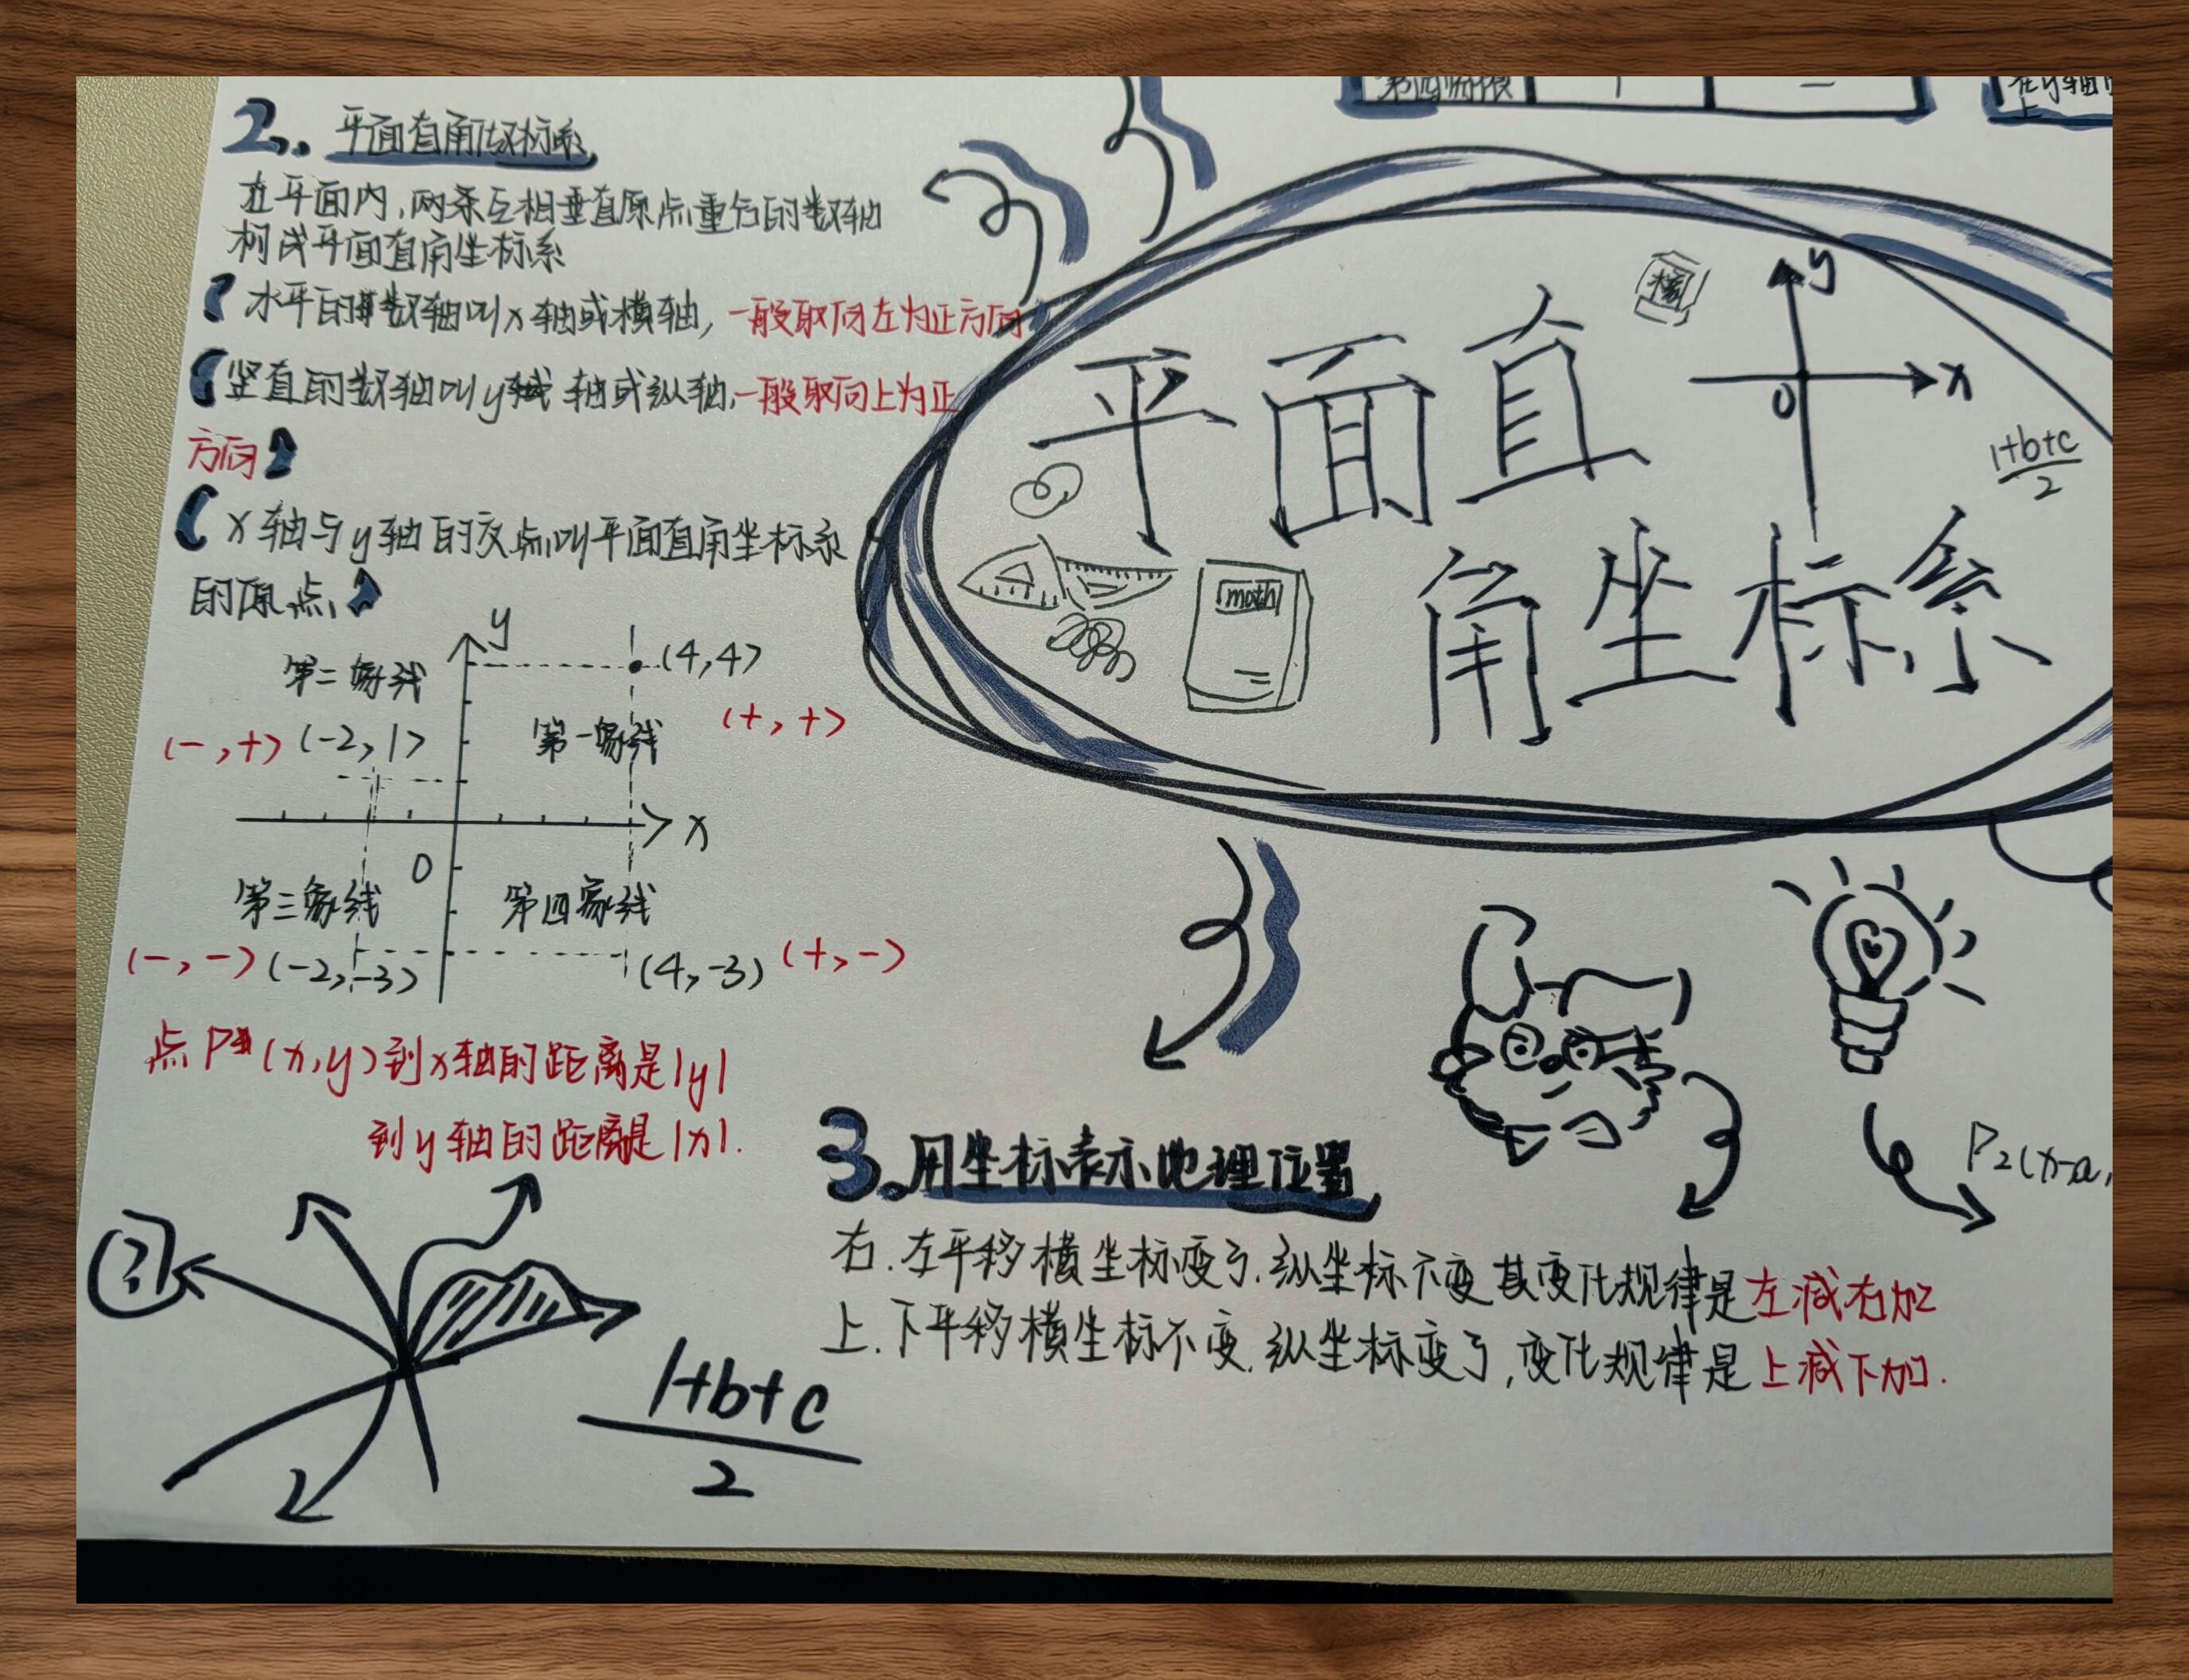 2. 平面直角坐标系
在平面内,两条互相垂直原点重合的数轴
构成平面直角坐标系
水平的数轴叫x轴或横轴,一般取向左为正方向
竖直的数轴叫y轴或纵轴,一般取向上为正
方向
x轴与y轴的交点叫平面直角坐标系
的原点
y
第二象线
(4,4)
(-,+) (-2,1)
第一象线
(+,+)
x
0
第三象线
第四象线
(-,-) (-2,-3)
(4,-3) (+,-)
点P(x,y)到x轴的距离是|y|
到y轴的距离是|x|.
?
1+b+c
2
第四象限 + -
在y轴
上
平面直
角坐标系
y
x
0
1+b+c
2
math
P2(x-a,
3.用坐标表示地理位置
右.左平移横坐标变了.纵坐标不变 其变化规律是左减右加
上.下平移横坐标不变.纵坐标变了,变化规律是上减下加.